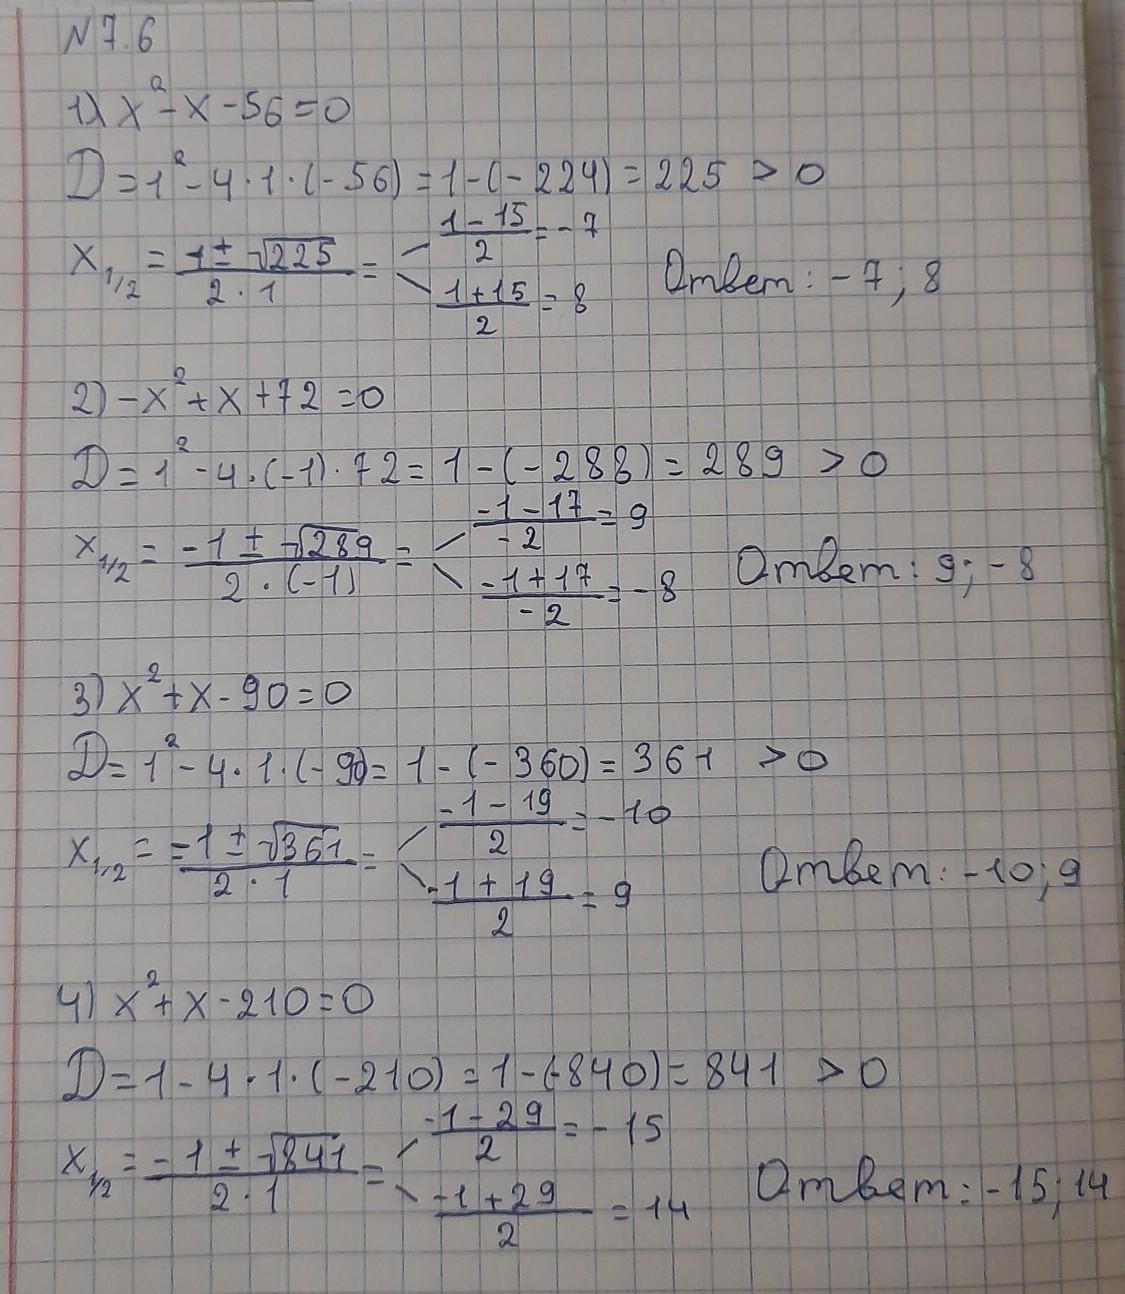 N 7.6
1) x² - x - 56 = 0
D = 1² - 4 · 1 · (-56) = 1 - (-224) = 225 > 0
x₁/₂ = (1 ± √225)/(2 · 1) = (1 - 15)/2 = -7
(1 + 15)/2 = 8 Ответ: -7; 8
2) -x² + x + 72 = 0
D = 1² - 4 · (-1) · 72 = 1 - (-288) = 289 > 0
x₁/₂ = (-1 ± √289)/(2 · (-1)) = (-1 - 17)/(-2) = 9
(-1 + 17)/(-2) = -8 Ответ: 9; -8
3) x² + x - 90 = 0
D = 1² - 4 · 1 · (-90) = 1 - (-360) = 361 > 0
x₁/₂ = (-1 ± √361)/(2 · 1) = (-1 - 19)/2 = -10
(-1 + 19)/2 = 9 Ответ: -10; 9
4) x² + x - 210 = 0
D = 1 - 4 · 1 · (-210) = 1 - (-840) = 841 > 0
x₁/₂ = (-1 ± √841)/(2 · 1) = (-1 - 29)/2 = -15
(-1 + 29)/2 = 14 Ответ: -15; 14